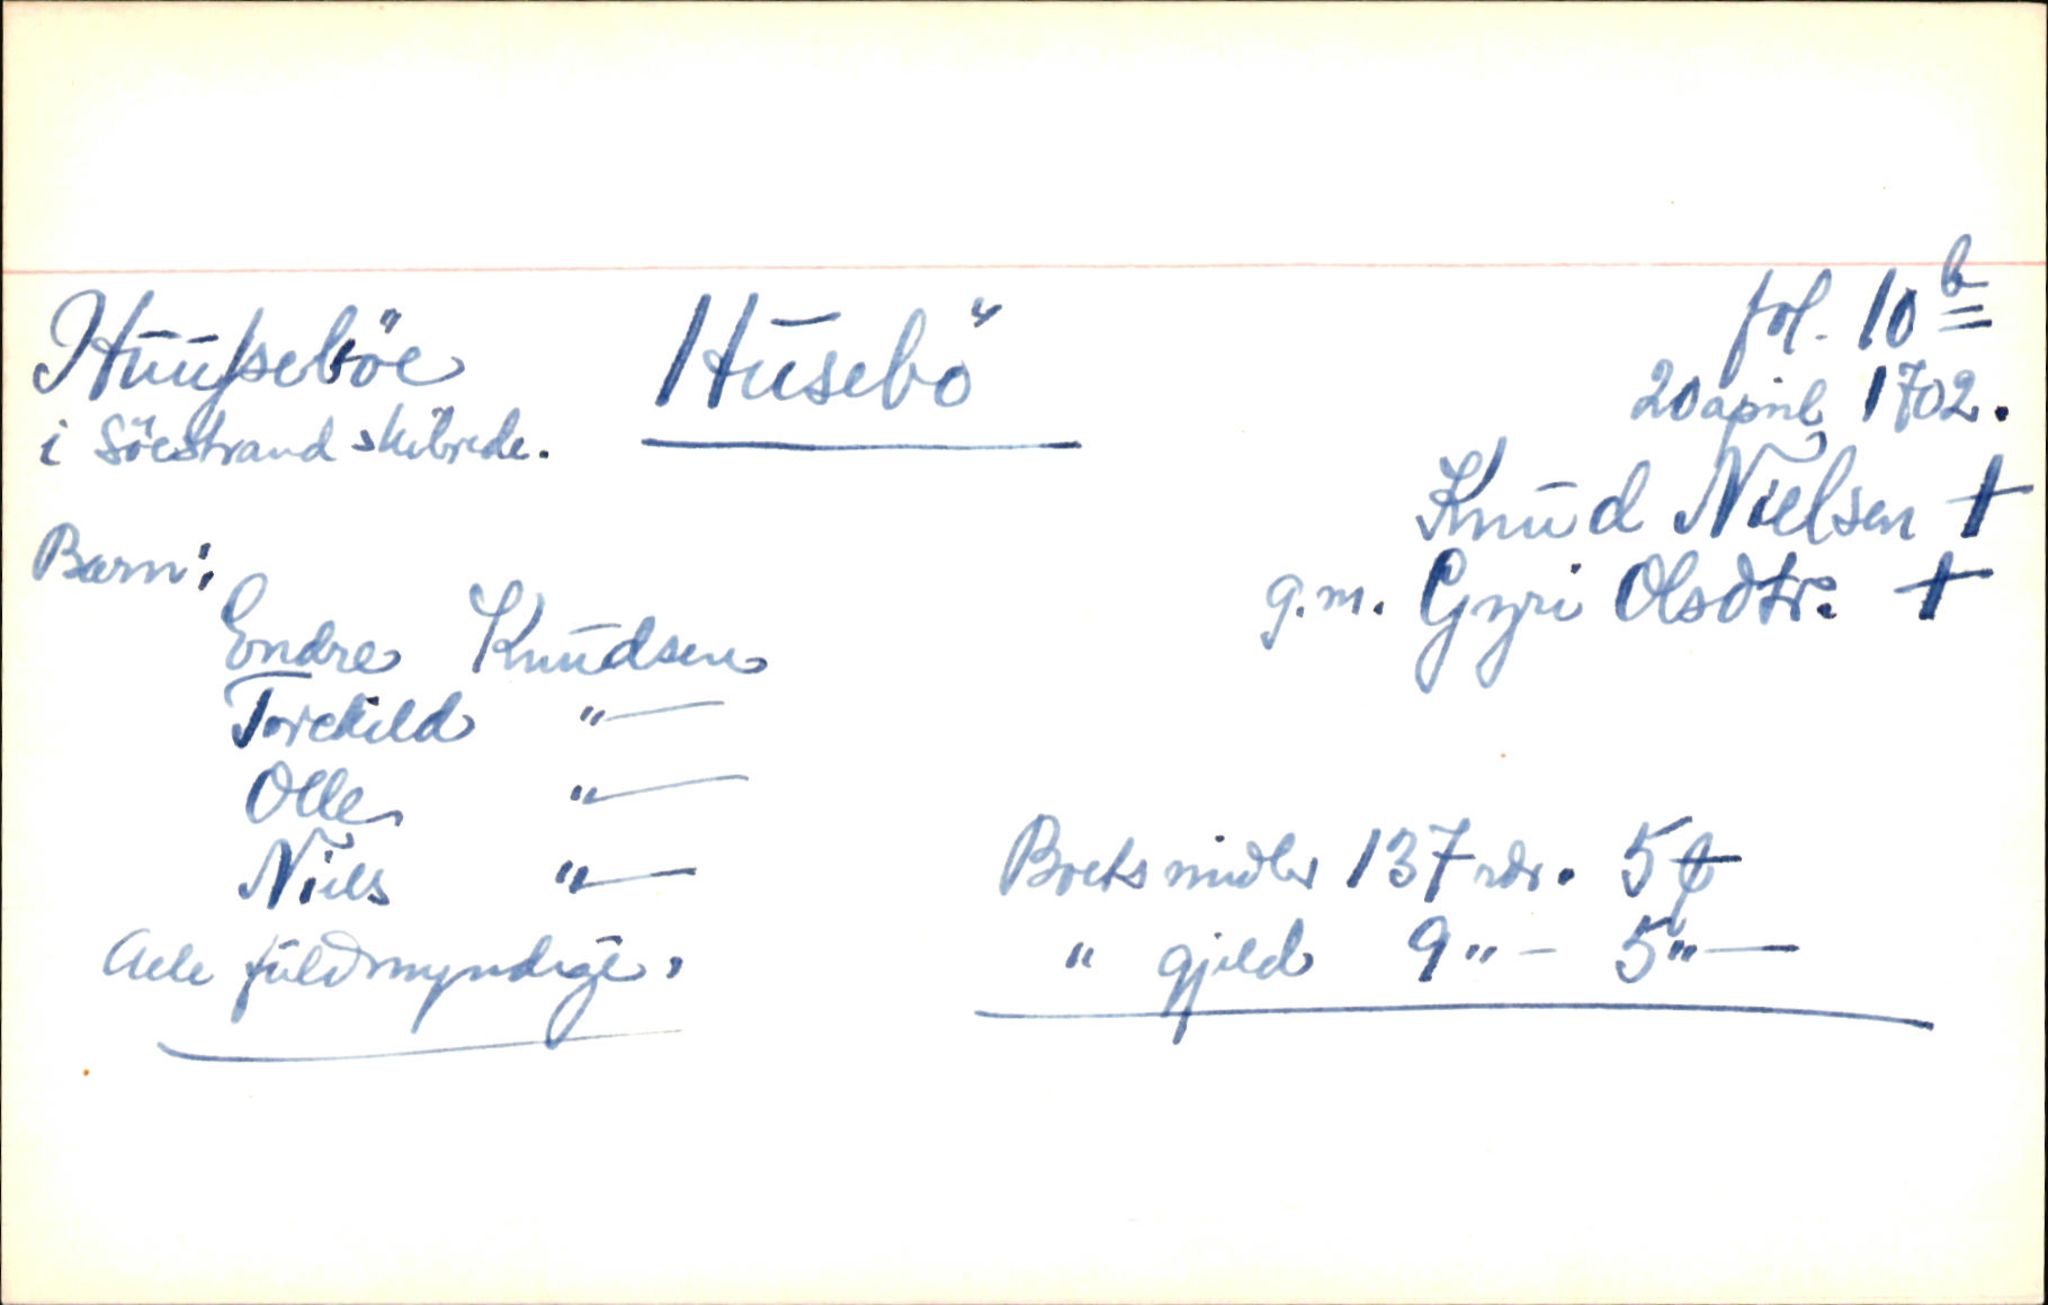 fol. 10 b
Huusebøe Husebö
20 april 1702.
i Söestrand skibrede.
Knud Nielsen †
g.m. Gyri Olsdtr. †
Barn:
Endre Knudsen
Torekild "—
Olle "—
Niels "—
Alle fuldmyndige.
Boets midler 137 rdr. 5 ₰
" gjeld 9 " – 5 " —